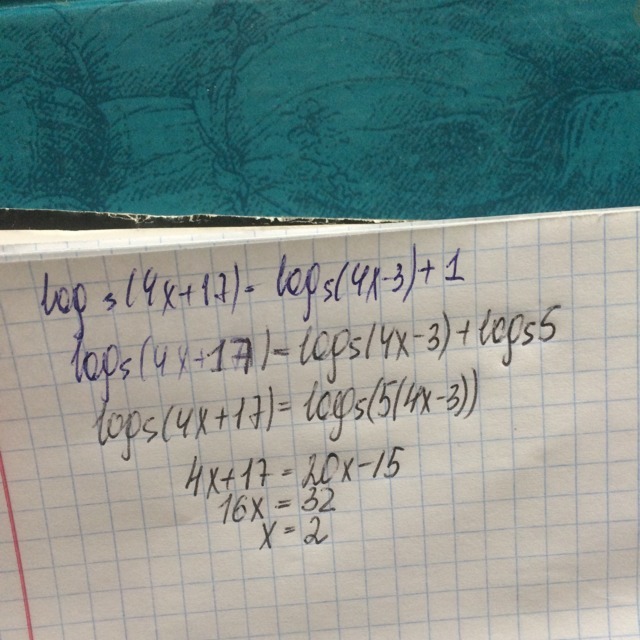 log₅(4x+17)=log₅(4x-3)+1
log₅(4x+17)=log₅(4x-3)+log₅5
log₅(4x+17)=log₅(5(4x-3))
4x+17=20x-15
16x=32
x=2